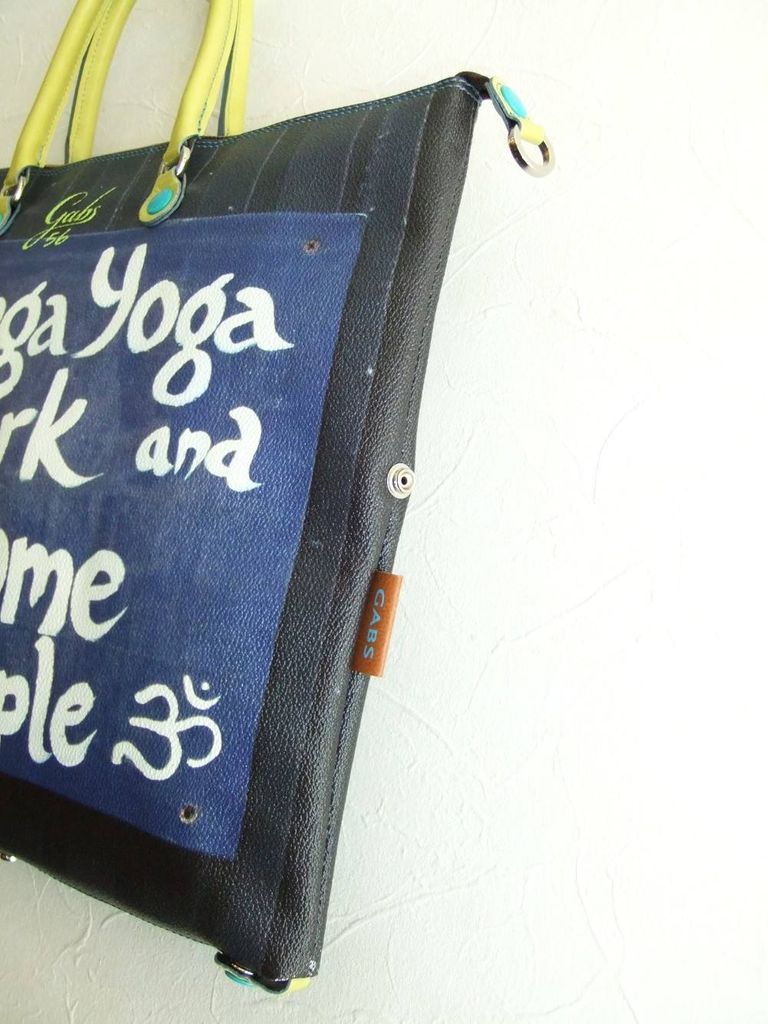 Gabs
56
ga Yoga
rk and
ome
ple ॐ
GABS